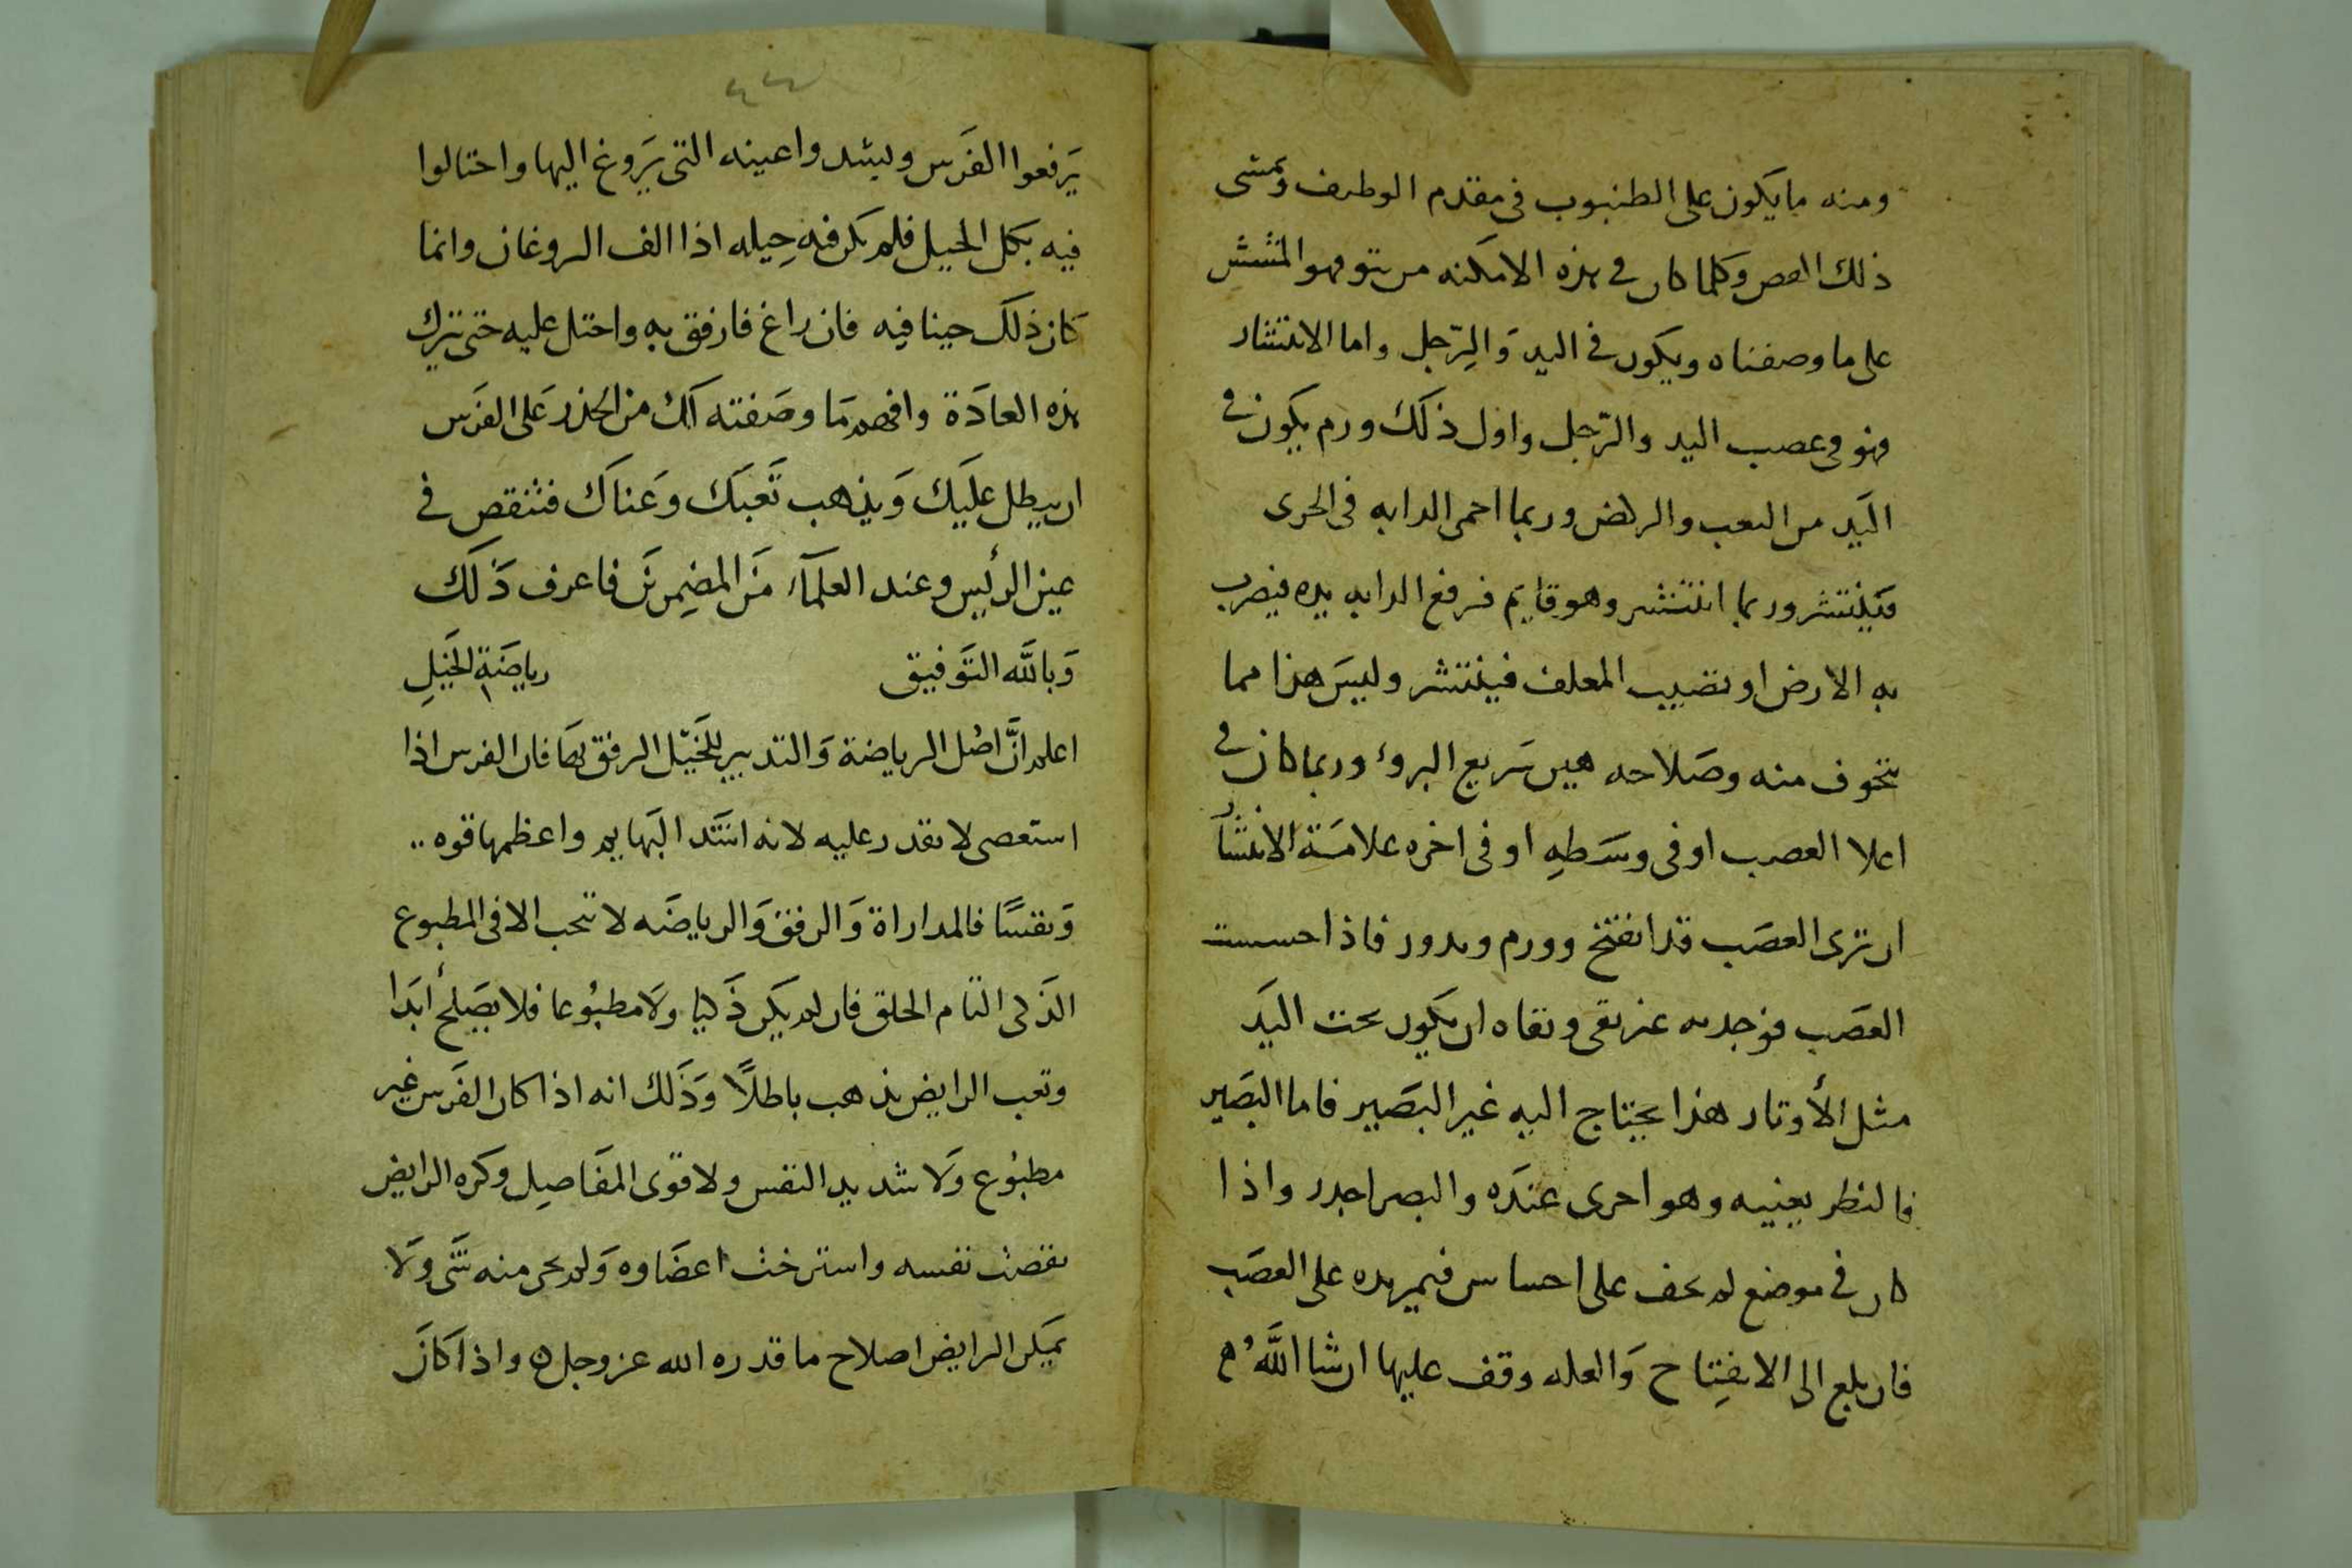 ومنه ما يكون على الطنبوب فى مقدم الوطيف وتمشى
ذلك العصر وكلما كان فى هذه الامكنه من نتو فهو المشش
على ما وصفناه ويكون فى اليد وَالرِّجل واما الانتشار
فهو فى عصب اليد والرّجل واول ذلك ورم يكون فى
اليَد من التعب والركض وربما احمى الدابه فى الجرى
فينتشر وربما انتشر وهو قايم فرفع الدابه يده فيضرب
به الارض او بقضيب المعلف فينتشر وليسَ هذا مما
يتخوف منه وصَلاحه هين سَريع البروء وربما كان فى
اعلا العصب او فى وسَطِهِ او فى اخره علامَة الانتشار
ان ترى العصَب قد انفتخ وورم وتدور فاذا حسست
العصَب فوجدته غير نقى ونقاه ان يكون تحت اليَد
مثل الأوتار هذا يحتاج اليه غير البصَير فاما البصَير
فالنظر بعينيه وهو احرى عندَه والبصر اجدر واذا
كان فى موضع لم يخف على احساس فيمر يده على العصَب
فان بلغ الى الانفِتاح وَالعله وقف عليها ان شا اللَّهُ م
٤٤
يَرفعوا الفرَس ويشدوا عينه التى يَروغ اليها واحتالوا
فيه بكل الحيل فلم يكن فيه حِيله اذا الف الروغان وانما
كان ذلك حينا فيه فان راغ فارفق به واحتل عليه حتى يترك
هذه العادَة وافهم مَا وصَفته لك من الحذر عَلى الفرَس
ان يبطل عليَك وَيذهب تَعبَك وَعناك فتنقص فى
عين الرئيس وعند العلمآء مَن المضِمرين فاعرف ذَلك
وَباللَّه التَوفيق رياضَة الخَيلِ
اعلم انَّ اصْل الرياضة وَالتدبير للخَيّل الرفق بهَا فان الفرس اذا
استعصى لا تقدر عليه لانه اشَد البَهايم واعظمها قوه
وَنفسًا فالمداراة وَالرفق وَالرياضَه لا تجب الا فى المطبوع
الذَكى التام الخلق فان لم يكن ذَكيا ولَا مطبُوعا فلا يصَلحُ ابَدا
وتعب الرايض يذهب باطلًا وَذَلك انه اذا كان الفَرس غير
مطبُوع وَلا شديد النفس ولا قوى المفَاصِل وكره الرايض
نقصت نفسه واسترخت اعضَاوه وَلم يجى منه شَى وَلَا
يمَكن الرايض اصلاح ما قدره الله عز وجل ه واذا كانَ